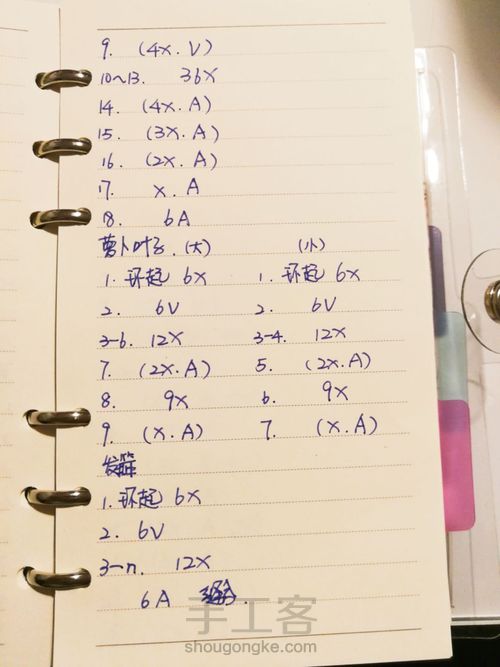 9. (4x.V)
10~13. 36x
14. (4x.A)
15. (3x.A)
16. (2x.A)
17. x.A
18. 6A
萝卜叶子.(大) (小)
1.环起 6x 1.环起 6x
2. 6V 2. 6V
3-6. 12x 3-4. 12x
7. (2x.A) 5. (2x.A)
8. 9x 6. 9x
9. (x.A) 7. (x.A)
发箍
1.环起 6x
2. 6V
3-n. 12x
6A
手工客
shougongke.com